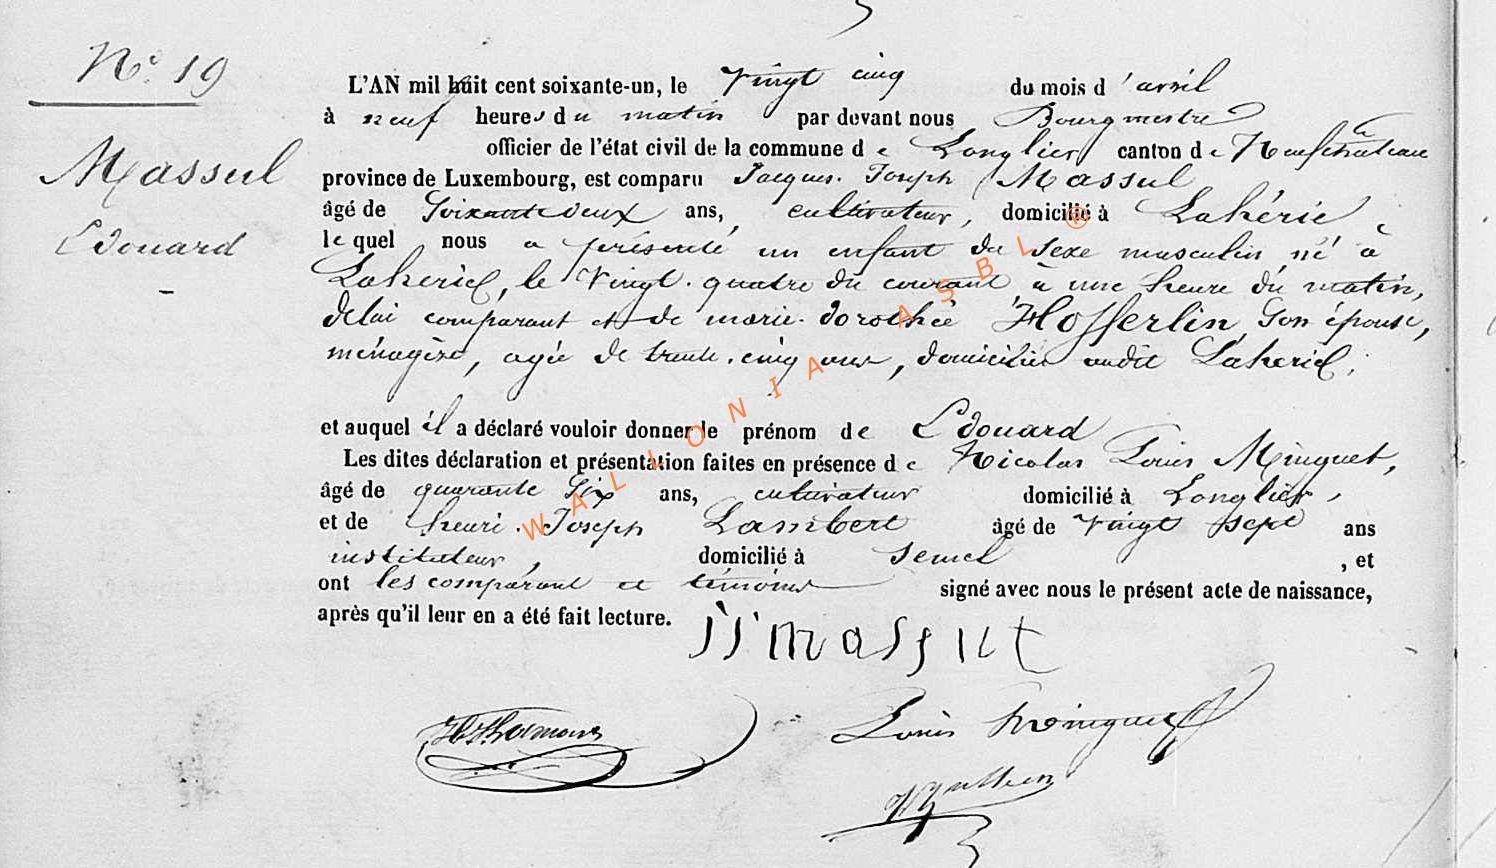 N° 19
Massul
Edouard
L'AN mil huit cent soixante-un, le vingt cinq du mois d'avril
à neuf heures du matin par devant nous Bourgmestre
officier de l'état civil de la commune de Longlier canton de Neufchateau
province de Luxembourg, est comparu Jacques Joseph Massul
âgé de soixante deux ans, cultivateur, domicilié à Lahérie,
lequel nous a présenté un enfant du sexe masculin, né à
Laheries, le vingt-quatre du courant à une heure du matin,
de lui comparant et de marie-dorothée Hofferlin, son épouse,
ménagère, agée de trente-cinq ans, domiciliée audit Laheries,
et auquel il a déclaré vouloir donner le prénom de Edouard
Les dites déclaration et présentation faites en présence de Nicolas Louis Minguet,
âgé de quarante six ans, cultivateur domicilié à Longlier,
et de henri-Joseph Lambert âgé de vingt sept ans
instituteur, domicilié à Semel , et
ont les comparant et témoins signé avec nous le présent acte de naissance,
après qu'il leur en a été fait lecture.
JJ massut
Louis Minguet
WALLONIA ASBL ®